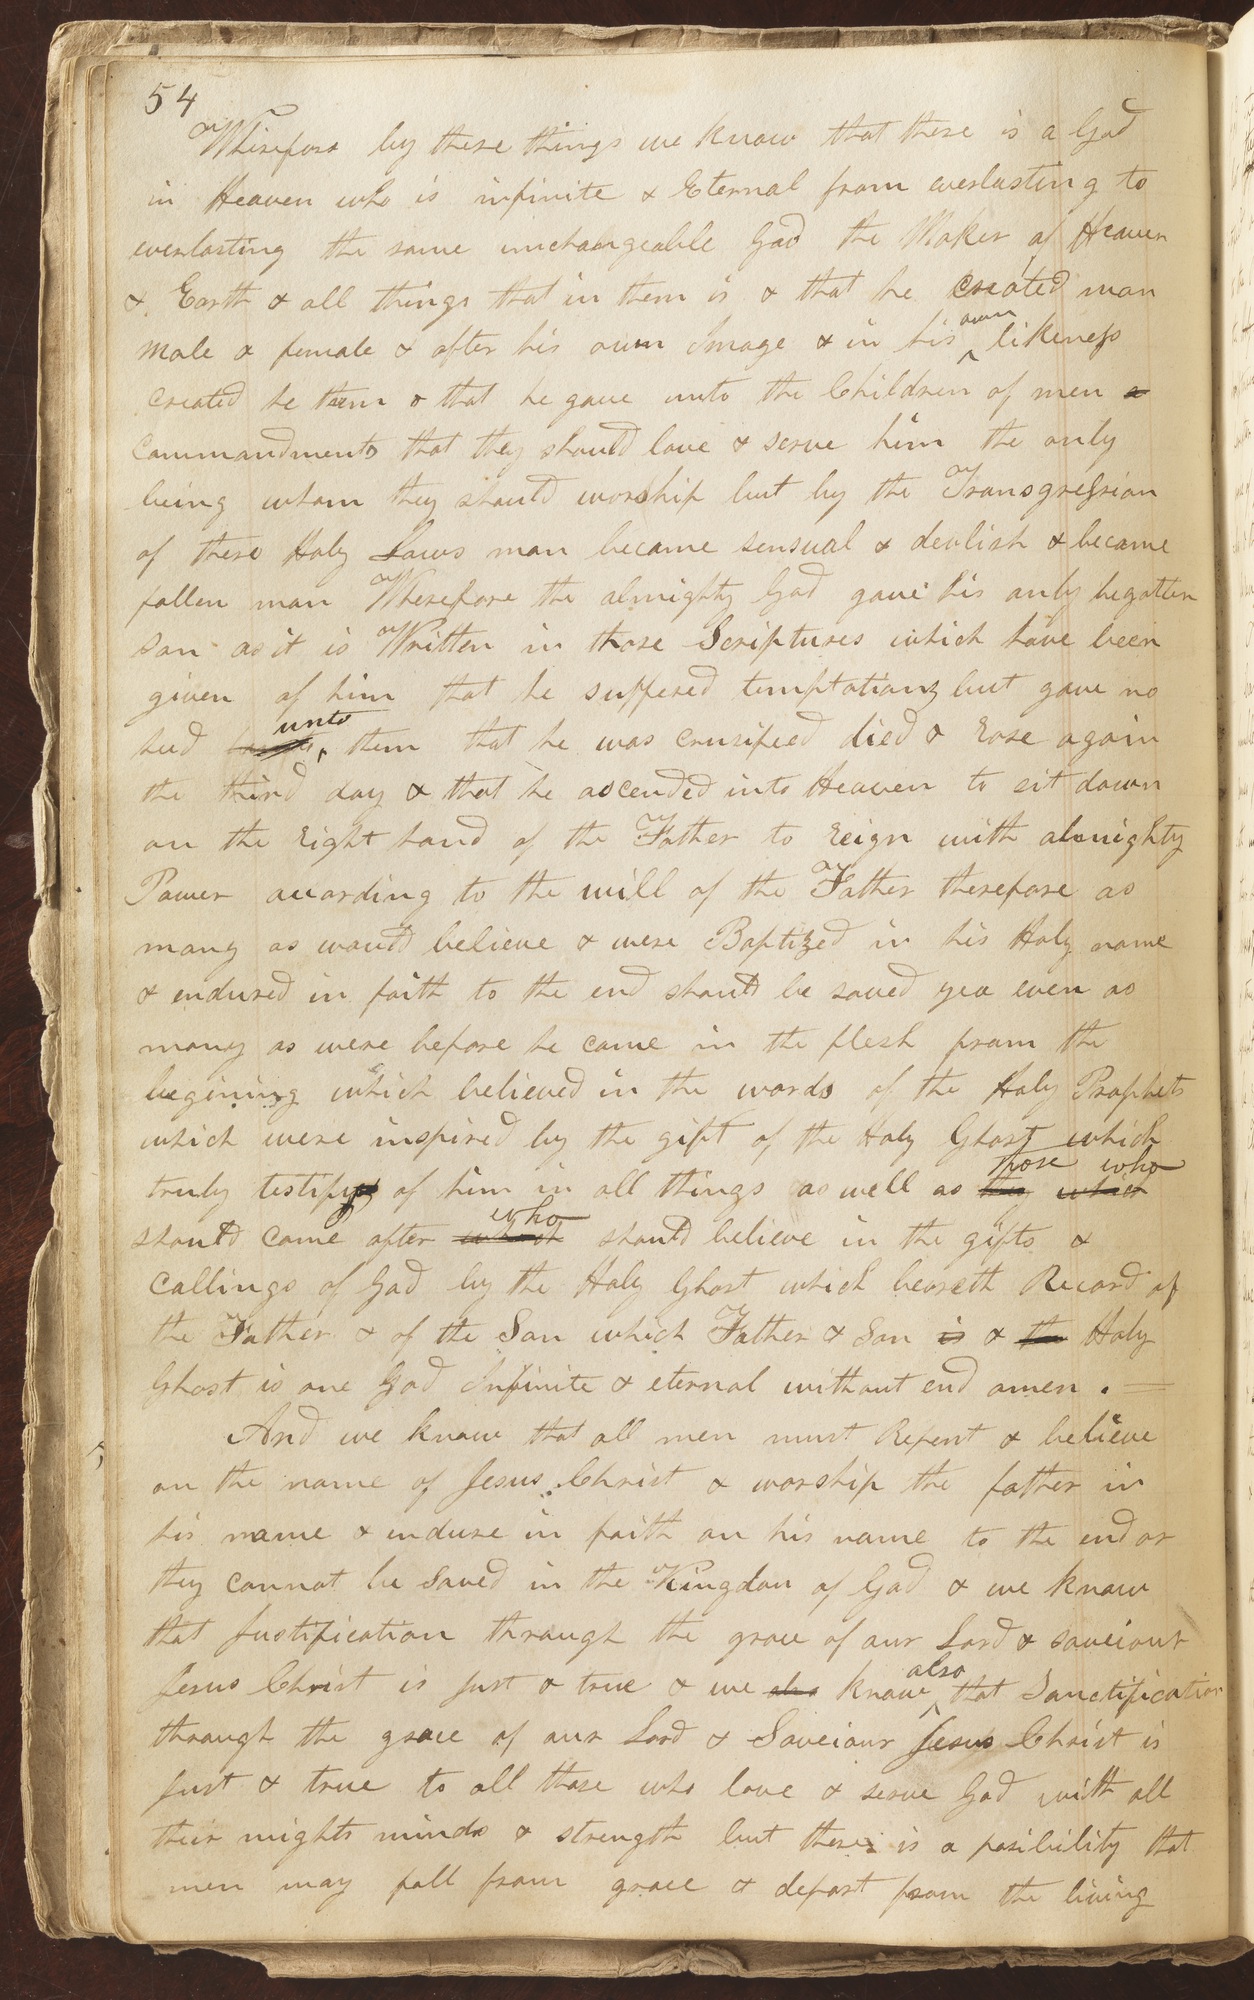 54
Wherefore by these things we know that there is a God
in Heaven who is infinite & Eternal from everlasting to
everlasting the same unchangeable God the Maker of Heaven
& Earth & all things that in them is & that he created man
Male & female & after his own Image & in his own likeness
created he them & that he gave unto the Children of men a
commandments that they should love & serve him the only
being whom they should worship but by the Transgression
of these Holy Laws man became sensual & devlish & became
fallen man Wherefore the almighty God gave his only begotten
Son as it is Written in those Scriptures which have been
given of him that he suffered temptations but gave no
heed unto them that he was crusified died & Rose again
the third day & that he ascended into Heaven to sit down
on the right hand of the Father to reign with almighty
Power according to the will of the Father therefore as
many as would believe & were Baptized in his Holy name
& endured in faith to the end should be saved yea even as
many as were before he came in the flesh from the
begining which believed in the words of the Holy Prophets
which were inspired by the gift of the Holy Ghost which
truly testifyed of him in all things as well as they which those who
should come after which who should believe in the gifts &
callings of God by the Holy Ghost which beareth Record of
the Father & of the Son which Father & Son is & the Holy
Ghost is one God Infinite & eternal without end amen . —
And we know that all men must Repent & believe
on the name of Jesus Christ & worship the father in
his name & endure in faith on his name to the end or
they cannot be Saved in the Kingdom of God & we know
that Justification through the grace of our Lord & saveiour
Jesus Christ is Just & true & we also know also that Sanctification
through the grace of our Lord & Saveiour Jesus Christ is
Just & true to all those who love & serve God with all
their mights minds & strength but there is a posibility that
men may fall from grace & depart from the living